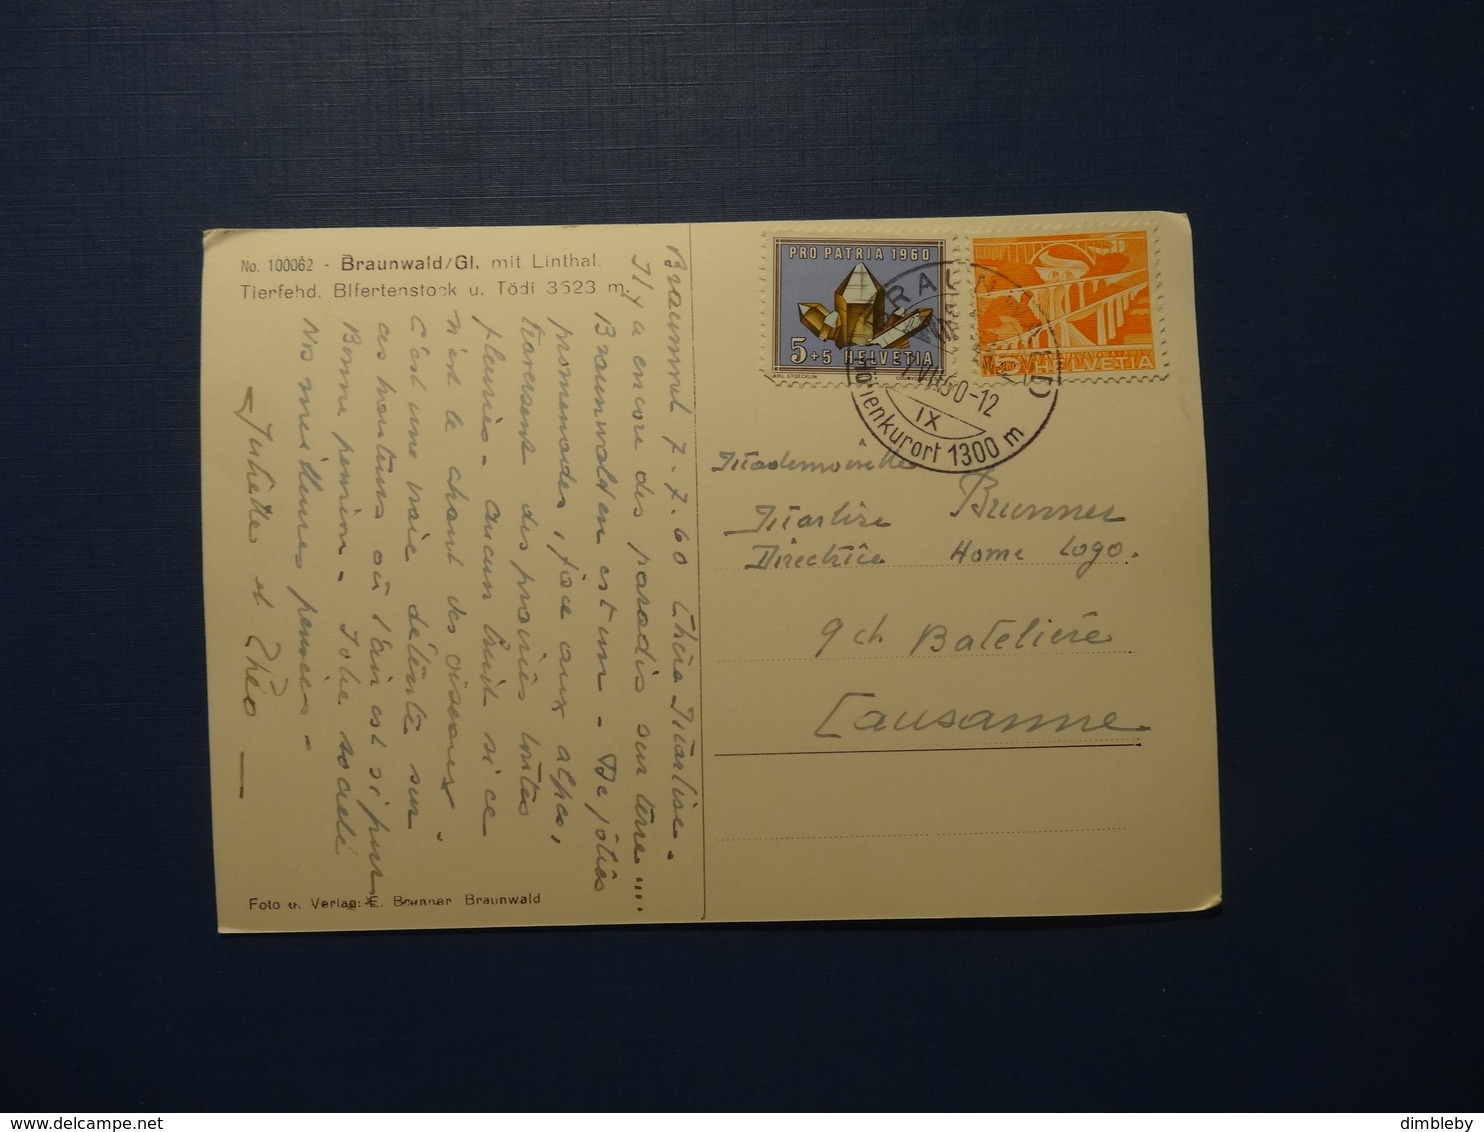 No. 100062 - Braunwald/Gl. mit Linthal.
Tierfehd, Bifertenstock u. Tödi 3623 m.
Braunwald 7.7.60 Chère Marlise.
Il y a encore des paradis sur terre....
Braunwald en est un - De jolies
promenades, face aux alpes,
traversent des prairies toutes
fleuries - aucun bruit si ce
n'est le chant des oiseaux.
C'est une vraie détente sur
ces hauteurs où l'air est si pur
Bonne pension - Jolie société
Nos meilleures pensées -
Juliette et Théo
Foto u. Verlag: E. Brunner Braunwald
PRO PATRIA 1960
5+5 HELVETIA
5 HELVETIA
BRAUNWALD
7.VII.60-12
IX
Höhenkurort 1300 m
Mademoiselle
Marlise Brunner
Directrice Home Logo.
9 ch Batelière
Lausanne
dimbleby